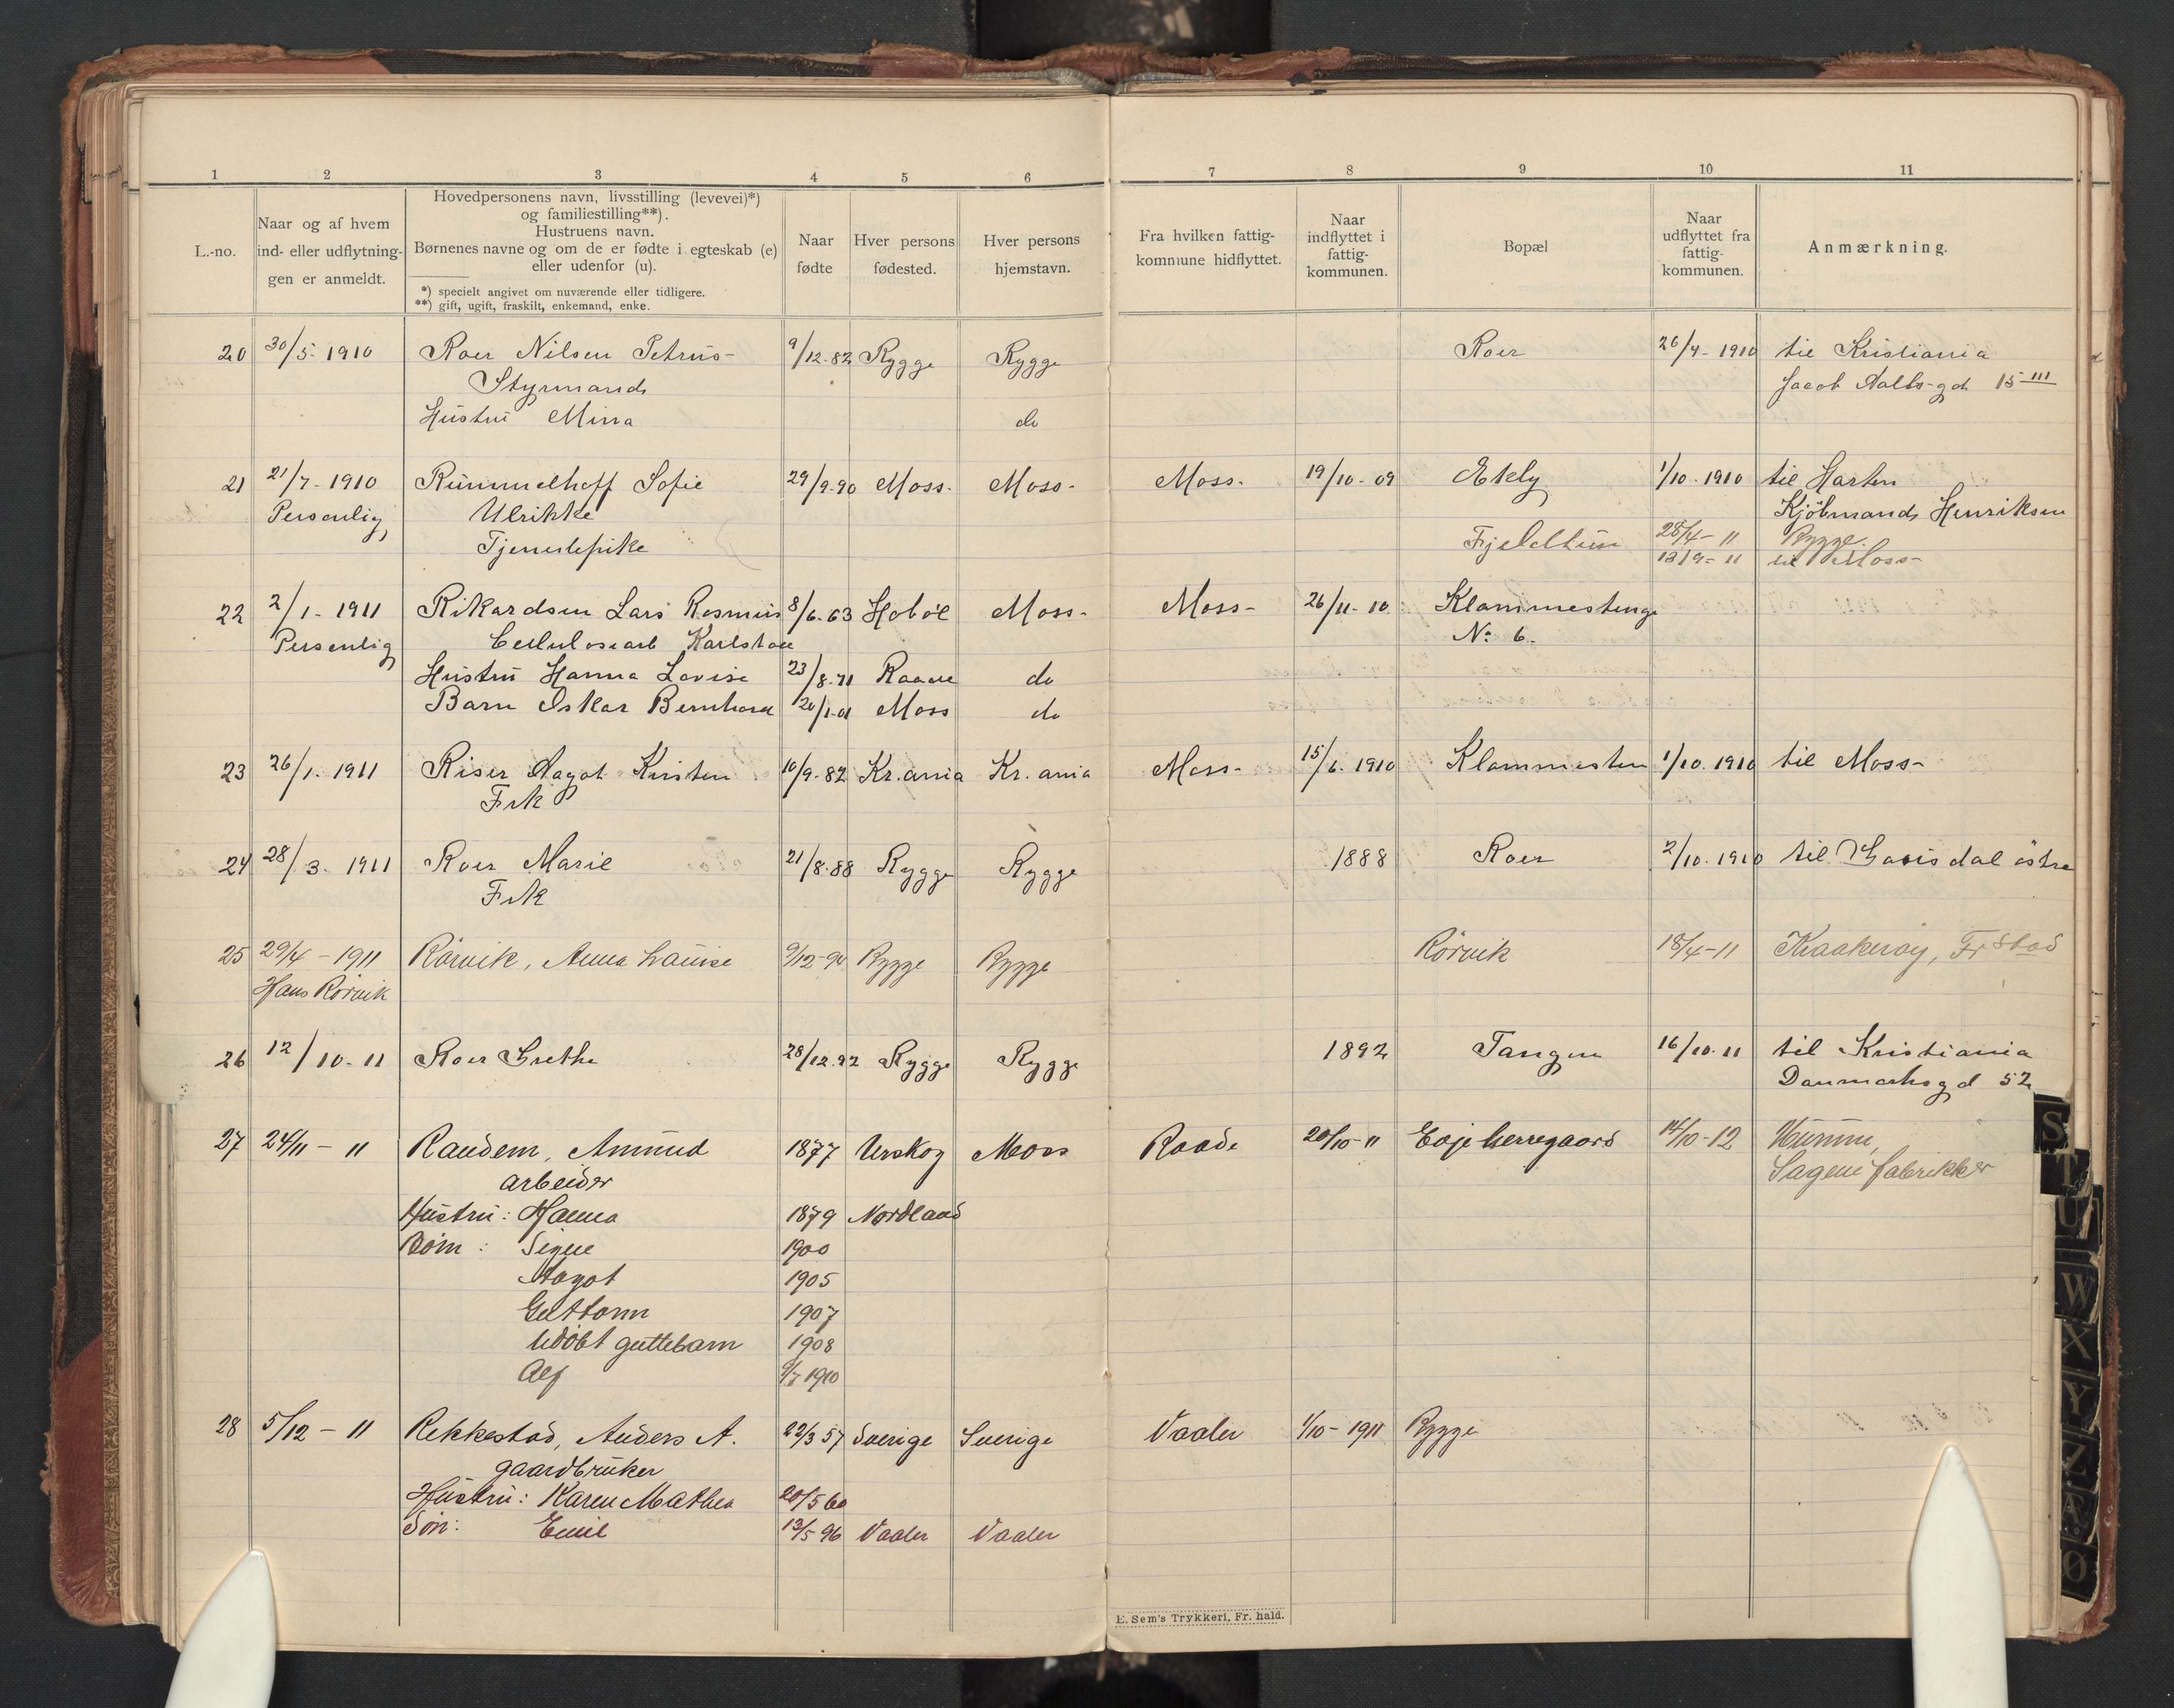 1 2 3 4 5 6 7 8 9 10 11
L.-no.
Naar og af hvem
ind- eller udflytning-
gen er anmeldt.
Hovedpersonens navn, livsstilling (levevei)*)
og familiestilling**).
Hustruens navn.
Børnenes navne og om de er fødte i egteskab (e)
eller udenfor (u).
*) specielt angivet om nuværende eller tidligere.
**) gift, ugift, fraskilt, enkemand, enke.
Naar
fødte
Hver persons
fødested.
Hver persons
hjemstavn.
Fra hvilken fattig-
kommune hidflyttet.
Naar
indflyttet i
fattig-
kommunen.
Bopæl
Naar
udflyttet fra
fattig-
kommunen.
Anmærkning.
20 30/5-1910 Roer Nilsen Petrus- 9/12-82 Rygge Rygge Roer 26/4-1910 til Kristiania
Styrmand Jacob Aalls-gd 15 III
Hustru Mina do
21 21/7-1910 Rummelhoff Sofie 29/9-90 Moss- Moss- Moss- 19/10-09 Ekely 1/10-1910 til Harten
Personlig Ulrikke Kjöbmand Henriksen
Tjenestepike Fjeldtun 28/4-11 Rygge.
13/9-11 til Moss-
22 2/1-1911 Rikardsen Lars Rasmus 8/6-63 Hoböl Moss- Moss- 26/11-10 Klommestenge
Personlig Cellulosearb Karlstad No 6.
Hustru Hanna Lovise 23/8-71 Raade do
Barn Oskar Bernhard 20/1-01 Moss do
23 26/1-1911 Riser Aagot Kristen 10/9-82 Kr.ania Kr.ania Moss- 15/6-1910 Klommesten 1/10-1910 til Moss-
Frk
24 28/3-1911 Roer Marie 21/8-88 Rygge Rygge 1888 Roer 2/10-1910 til östre
Frk
25 29/4-1911 Rörvik, Anna Louise 9/12-94 Rygge Rygge Rörvik 18/4-11 Kraakeröy, Fr stad
Hans Rörvik
26 12/10-11 Roer Grethe 28/12-92 Rygge Rygge 1892 Tangen 16/10-11 til Kristiania
Danmarksgd 52
27 24/11-11 Randem, Amund 1877 Urskog Moss Raade 20/10-11 Evje herregaard 14/10-12
arbeider Sagene fabrikker
Hustru: Hanna 1879 Nordland
Börn: Signe 1900
Aagot 1905
Guttorm 1907
Udöbt guttebarn 1908
Alf 9/7 1910
28 5/12-11 Rekkestad, Anders A. 22/3 57 Sverige Sverige Vaaler 1/10-1911 Rygge
gaardbruker
Hustru: Karen Mathea 20/5 60
Sön: Emil 13/5 96 Vaaler Vaaler
E. Sem's Trykkeri, Fr. hald.
S
T
U
W
X
Y
Z
Æ
Ø